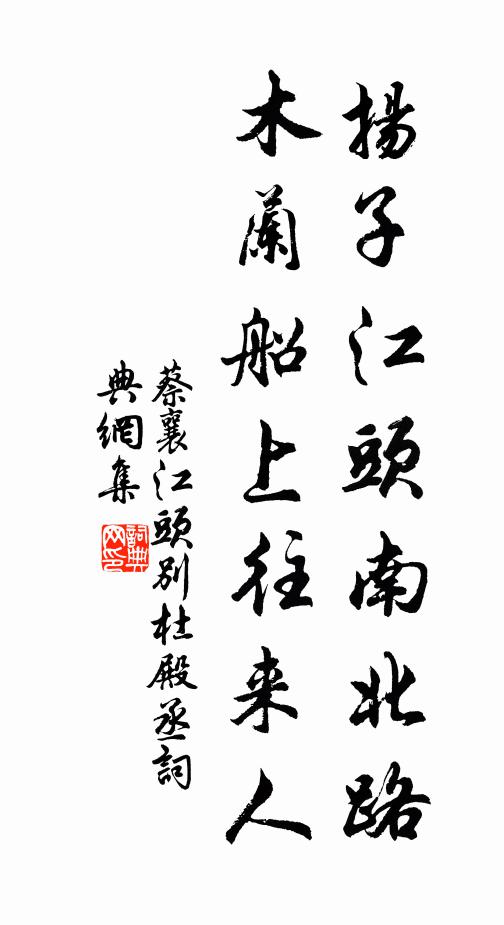 揚子江頭南北路
木蘭船上往来人
蔡襄江頭別杜殿丞詞
典網集
詞典
网印